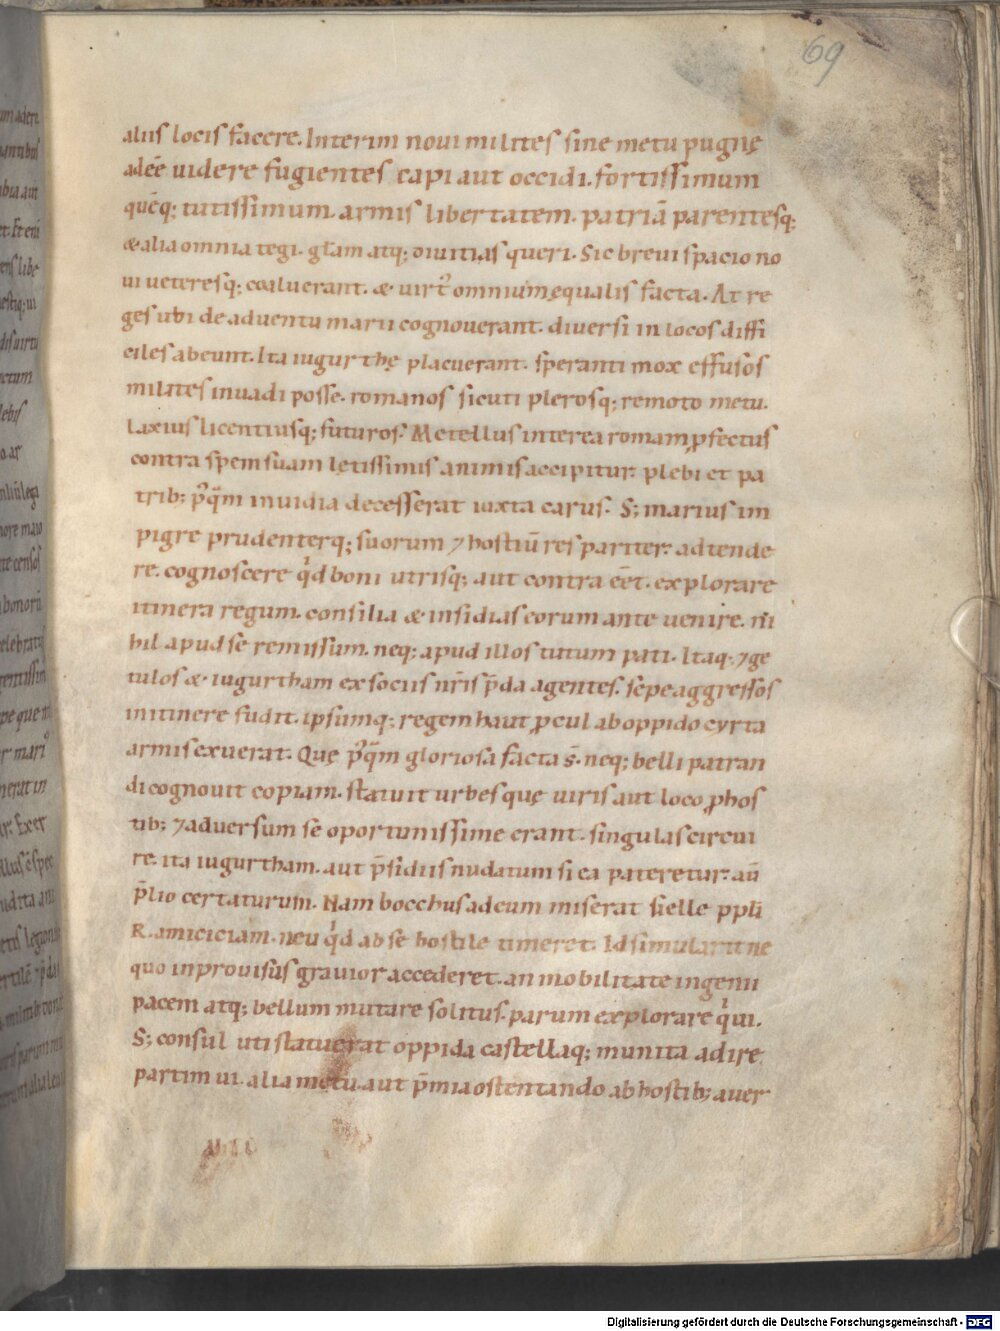 69
aliis locis facere. Interim noui milites sine metu pugnę
adeē uidere fugientes capi aut occidi. fortissimum
quēq; tutissimum. armis libertatem. patriā parentesq;
& alia omnia tegi. gl̄am atq; diuitias queri. Sic breui spacio no
ui ueteresq; coaluerant. & uirt᷒ omnium ęqualis facta. At re
ges ubi de aduentu marii cognouerant. diuersi in locos diffi
ciles abeunt. Ita iugurthę placuerant. speranti mox effusos
milites inuadi posse. romanos sicuti plerosq; remoto metu.
laxius licentiusq; futuros. Metellus interea romam ꝓfectus
contra spem suam lętissimis animis accipitur. plebi et pa
trib; pq̄m inuidia decesserat iuxta carus. S; marius im
pigre prudenterq; suorum ⁊ hostiū res pariter. adtende
re. cognoscere qd boni utrisq; aut contra eēt. explorare
itinera regum. consilia & insidias eorum ante uenire. ni
hil apud se remissum. neq; apud illos tutum pati. Itaq. ⁊ ge
tulos &. iugurtham ex sociis nr̄is p̄da agentes. sępe aggressos
in itinere fudit. ipsumq; regem haut ꝓcul ab oppido cyrta
armis exuerat. Quę pq̄m gloriosa facta s̄. neq; belli patran
di cognouit copiam. statuit urbes quę uiris aut loco ꝓ hos
tib; ⁊ aduersum se oportunissime erant. singulas circui
re. ita iugurtham. aut p̄sidiis nudatum si ea pateretur. aū
p̄lio certaturum. Nam bocchus ad eum miserat sielle ppl̄i
R. amiciciam. neu qd ab se hostile timeret. Id simularit ne
quo inprouisus grauior accederet. an mobilitate ingenii
pacem atq; bellum mutare solitus. parum explorare qui.
S; consul uti statuerat oppida castellaq; munita adire
partim ui. alia metu. aut p̄mia ostentando ab hostib; auer
Digitalisierung gefördert durch die Deutsche Forschungsgemeinschaft - DFG